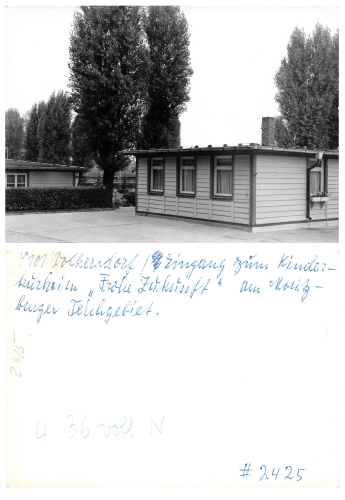 8101 Volkersdorf / Eingang zum Kinder-
kurheim "Frohe Zukunft" am Moritz-
burger Teichgebiet.
2425
4 36 voll N
# 2425